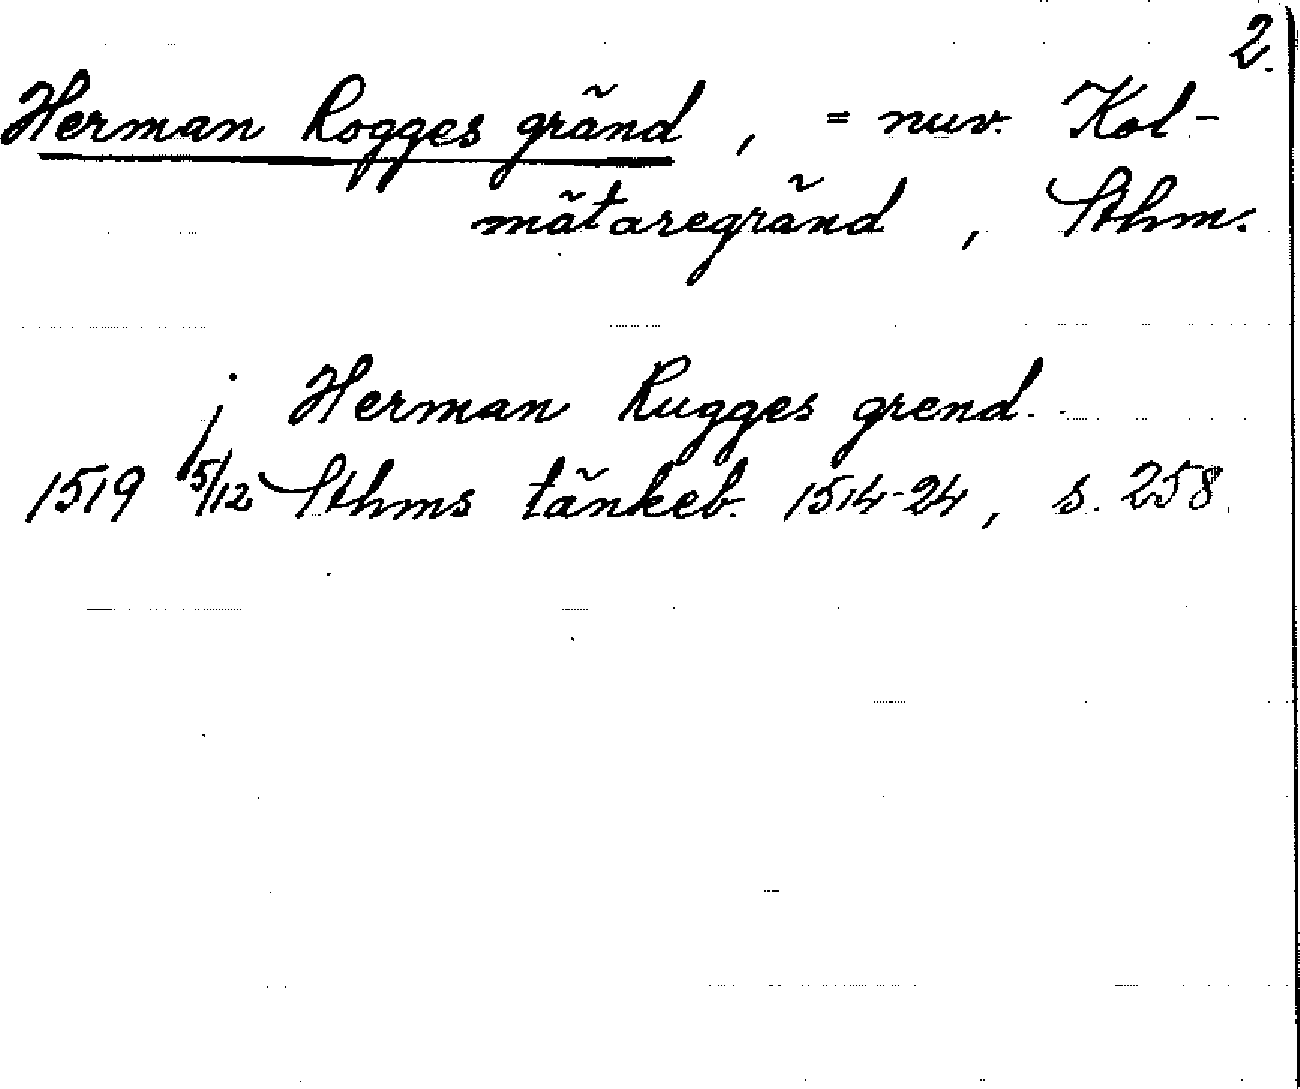 2.
Herman Rogges gränd, = nuv. Kol-
mätaregränd, Sthm.
j Herman Rugges grend.
1519 5/12 Sthms tänkeb. 1514-24, s. 258